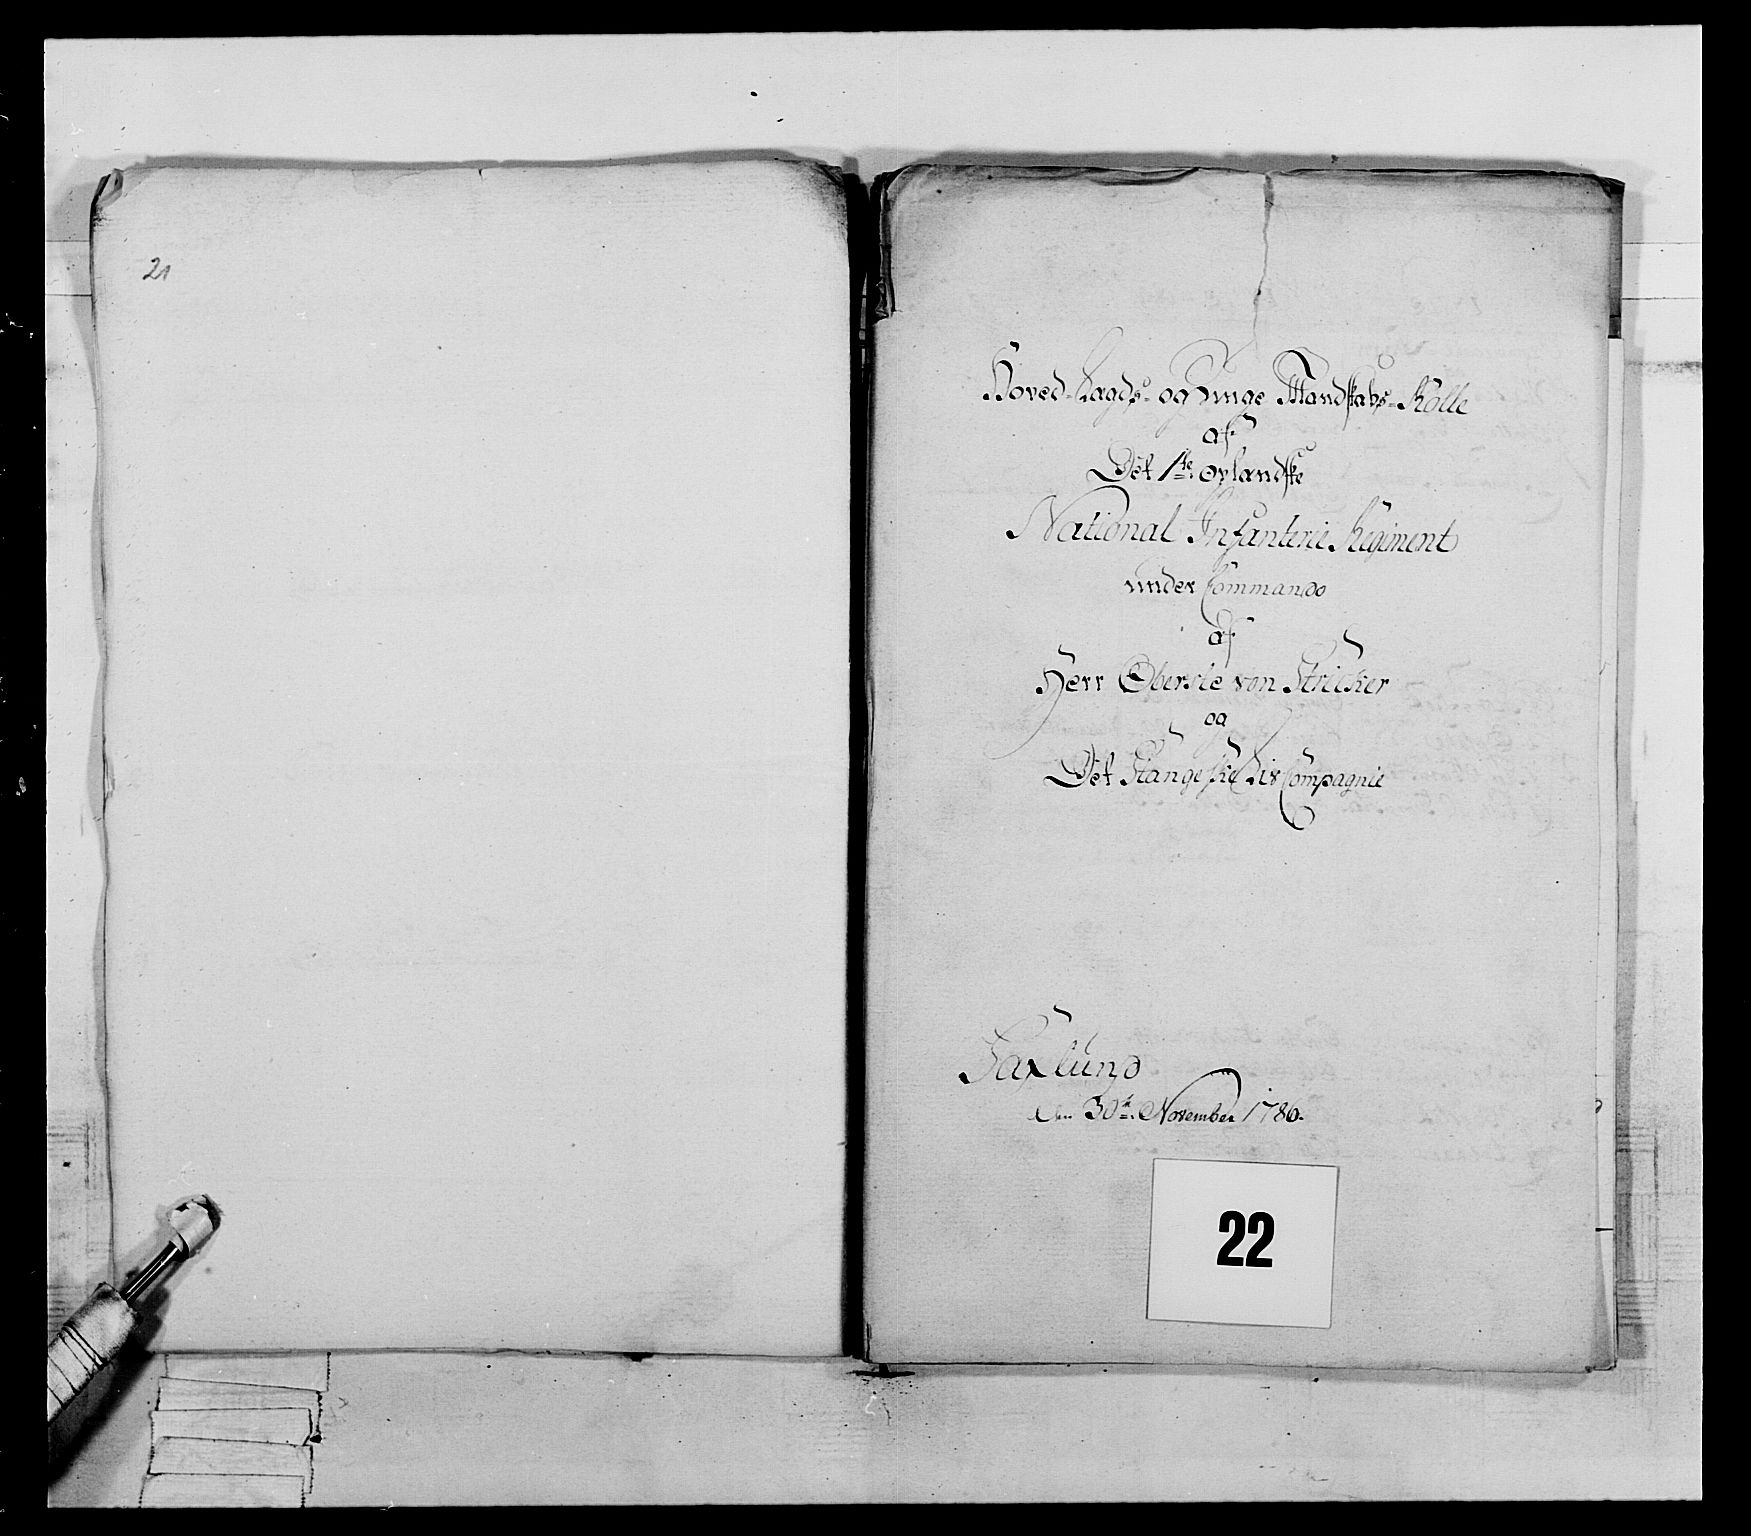 21
Hoved-Lægds- og Unge Mandskabs-Rolle
af
Det 1te. Oplandske
National Infanterie Regiment
under Commando
af
Herr Oberste von Stricker
og
Det Stangeske Dis: Compagnie
Faxlund
den 30te. November 1786.
22